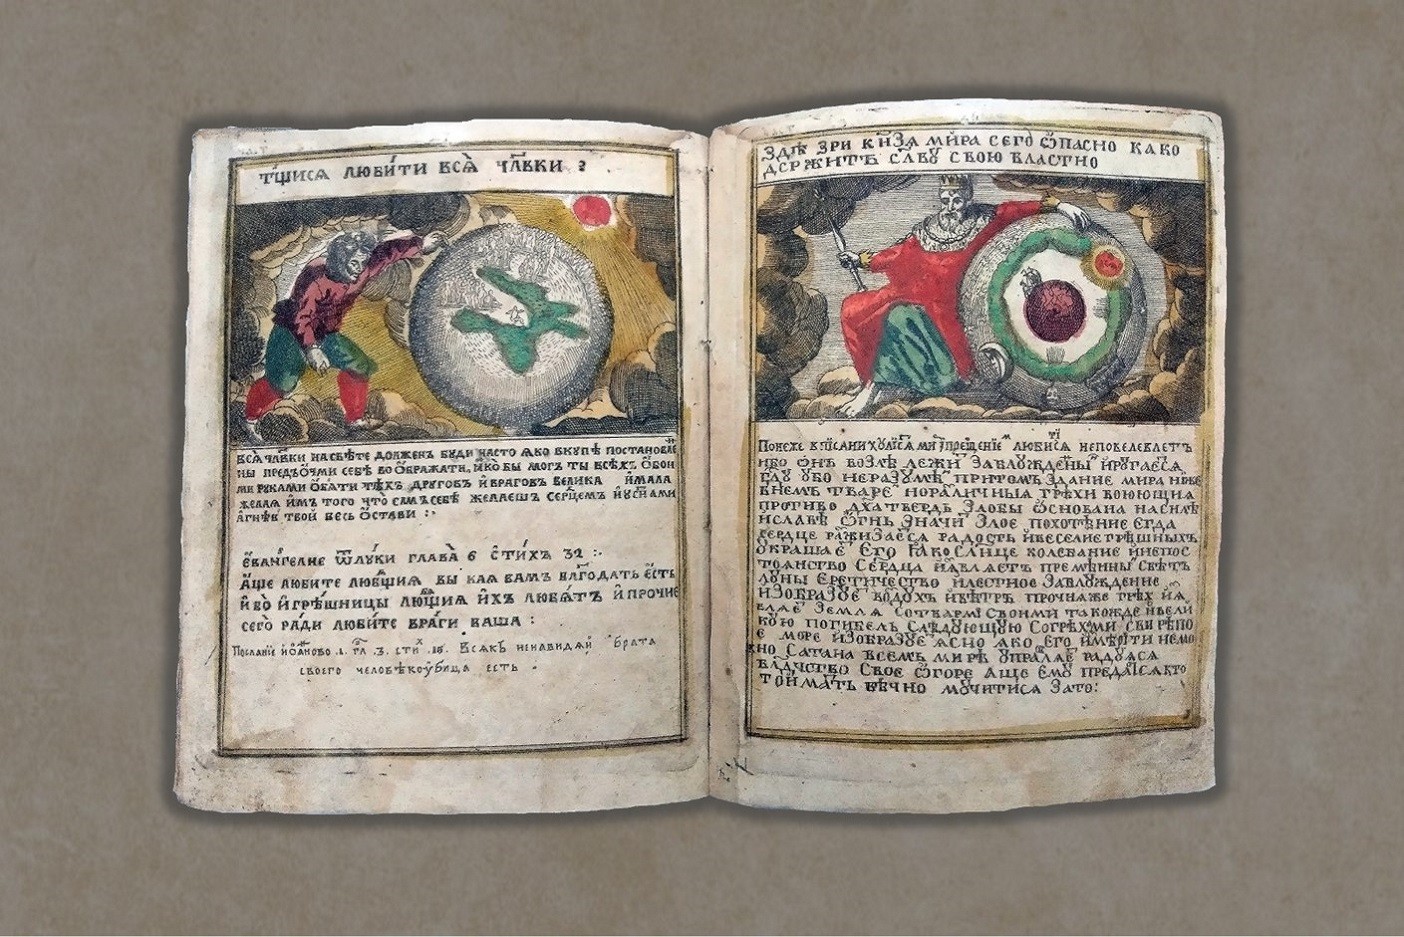 тщися любити вся члвки ?
вся члвки на свѣте должен буди часто яко вкупѣ постановле
ны предъ очми себѣ воображати, яко бы могъ ты всѣхъ обои
ми руками обяти тѣхъ другов и врагов велика и мала
желая имъ того что самъ себѣ желаешъ сердцем и усты
а гнѣв твой весь остави :
евангелие ѿ луки глава 6 стихъ 32 :
аще любите любящия вы кая вамъ благодать есть
ибо и грѣшницы любящия ихъ любятъ и прочие
сего ради любите враги ваша :
Послание иоанново .1. гл .3. сти .15. Всякъ ненавидяй брата
своего человѣкоубица есть .
здѣ зри кнзя мира сего опасно како
держитъ славу свою властно
Понеже в писании любися не повелеваетъ
ибо онъ во злѣ лежи заблуждены и ругается
гду убо неразумѣ притомъ здание мира
внемъ тваре грѣхи воюющия
противо дха твердь злобы основана на силѣ
и славѣ огнь значи злое похотѣние егда
сердце ражизается радость и веселие грѣшныхъ
украшае его яко слнце колебание и непос
тоянство сердца являетъ премѣнны свѣтъ
луны еретичество и лестное заблуждение
изобразуе воздухъ и вѣтръ прочия же грѣх ия
вляе земля со тварми своими такожде и вели
кую погибель слѣдующую со грѣхми свирѣпо
е море изобразуе ясно яко его имѣти немо
но сатана всемъ мирѣ управляе радуяся
владчство свое о горе аще ему предался кто
той мать вѣчно мучитися зато: